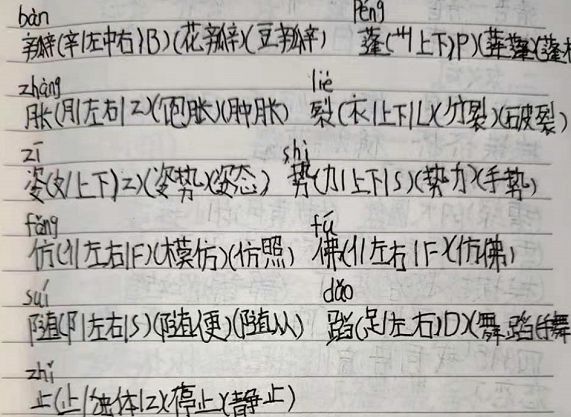 bàn péng
瓣(辛|左中右|B)(花瓣)(豆瓣) 蓬(艹|上下|P)(莲蓬)(蓬
zhàng liè
胀(月|左右|Z)(饱胀)(肿胀) 裂(衣|上下|L)(分裂)(破裂)
zī shì
姿(女|上下|Z)(姿势)(姿态) 势(力|上下|S)(势力)(手势)
fǎng fú
仿(亻|左右|F)(模仿)(仿照) 佛(亻|左右|F)(仿佛)
suí dǎo
随(阝|左右|S)(随便)(随从) 蹈(足|左右|D)(舞蹈)(手舞
zhǐ
止(止|独体|Z)(停止)(静止)